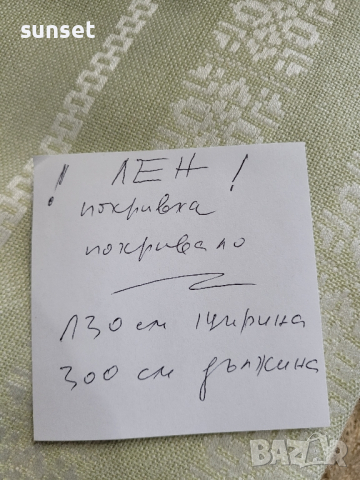 sunset
! ЛЕН !
покривка
покривало
130 см ширина
300 см дължина
BAZAR